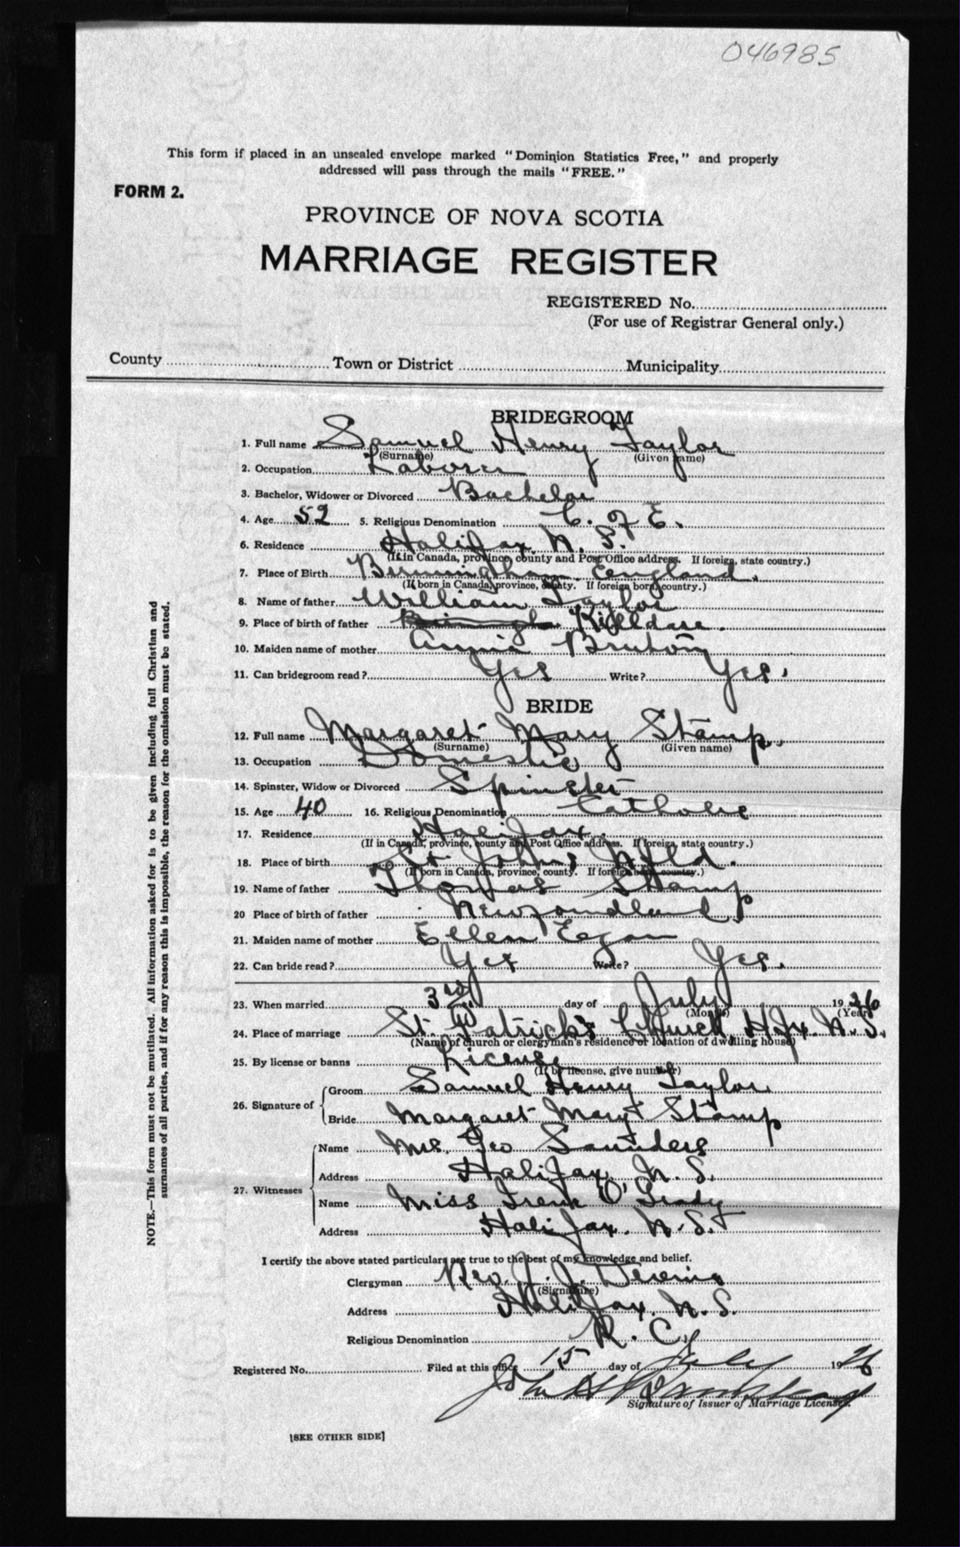 046985
This form if placed in an unsealed envelope marked "Dominion Statistics Free," and properly
addressed will pass through the mails "FREE."
FORM 2.
PROVINCE OF NOVA SCOTIA
MARRIAGE REGISTER
REGISTERED No.
(For use of Registrar General only.)
County Town or District Municipality
BRIDEGROOM
1. Full name Samuel Henry Taylor
(Surname) (Given name)
2. Occupation Laborer
3. Bachelor, Widower or Divorced Bachelor
4. Age 52 5. Religious Denomination C. of E.
6. Residence Halifax N. S.
(If in Canada, province, county and Post Office address. If foreign, state country.)
7. Place of Birth Birmingham England.
(If born in Canada, province, county. If foreign born, country.)
8. Name of father William Taylor
9. Place of birth of father Killdare.
10. Maiden name of mother Annie Bruton
11. Can bridegroom read? Yes Write? Yes.
BRIDE
12. Full name Margaret Mary Stamp.
(Surname) (Given name)
13. Occupation Domestic
14. Spinster, Widow or Divorced Spinster
15. Age 40 16. Religious Denomination Catholic
17. Residence Halifax.
(If in Canada, province, county and Post Office address. If foreign, state country.)
18. Place of birth St. Johns Nfld.
(If born in Canada, province, county. If foreign born, country.)
19. Name of father Thomas Stamp
20 Place of birth of father Newfoundland
21. Maiden name of mother Ellen Egan
22. Can bride read? Yes Write? Yes.
23. When married 3rd day of July 1926
(Month) (Year)
24. Place of marriage St. Patrick's Church Hfx. N. S.
(Name of church or clergyman's residence or location of dwelling house)
25. By license or banns License
(If by license, give number)
26. Signature of Groom Samuel Henry Taylor
Bride Margaret Mary Stamp
27. Witnesses Name Mrs. Geo Saunders
Address Halifax, N. S.
Name Miss Irene O'Grady
Address Halifax. N. S.
I certify the above stated particulars are true to the best of my knowledge and belief.
Clergyman Rev. J. J.
(Signature)
Address Halifax. N. S.
Religious Denomination R. C.
Registered No. Filed at this office 15 day of July 1926
John
Signature of Issuer of Marriage Licenses.
[SEE OTHER SIDE]
NOTE.—This form must not be mutilated. All information asked for is to be given including full Christian and
surnames of all parties, and if for any reason this is impossible, the reason for the omission must be stated.